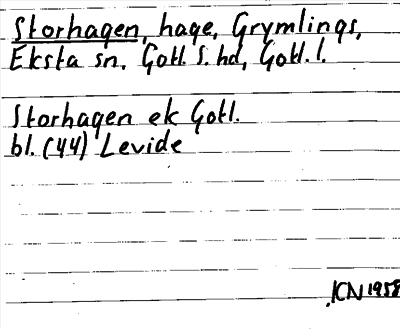 Storhagen, hage, Grymlings,
Eksta sn, Gotl. S. hd, Gotl. l.
Storhagen ek Gotl.
bl. (44) Levide
ICN 1958